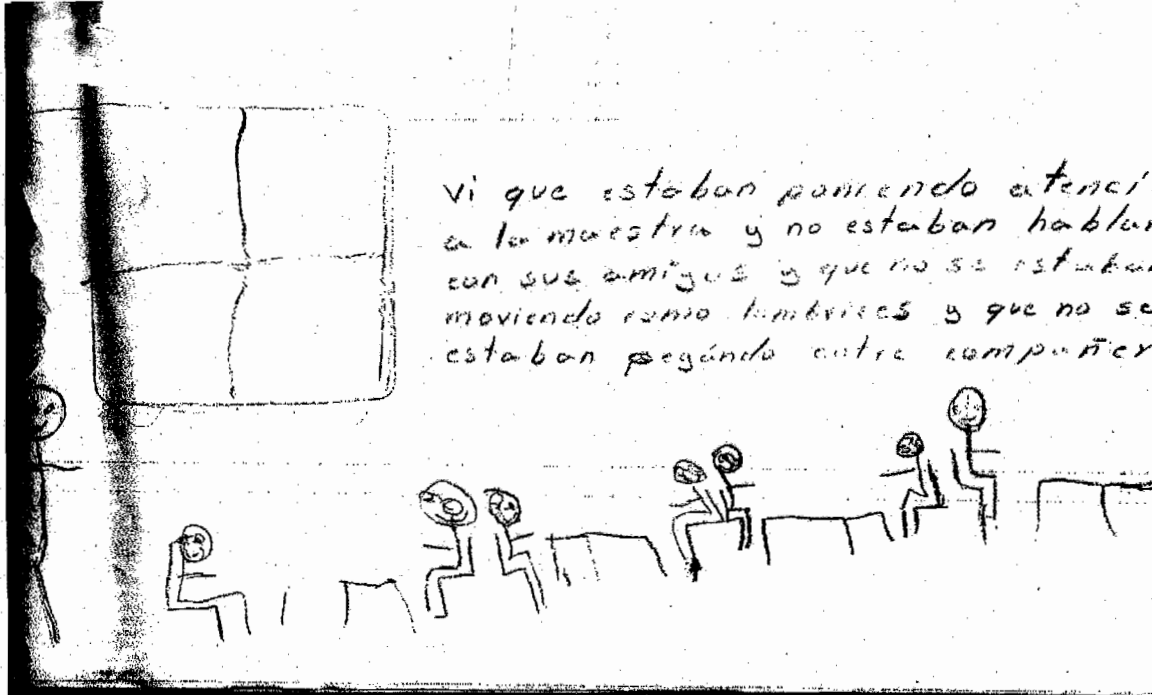 Vi que estaban poniendo atenci
a la maestra y no estaban hablan
con sus amigos y que no se estaban
moviendo como lombrices y que no se
estaban pegándo entre compañer